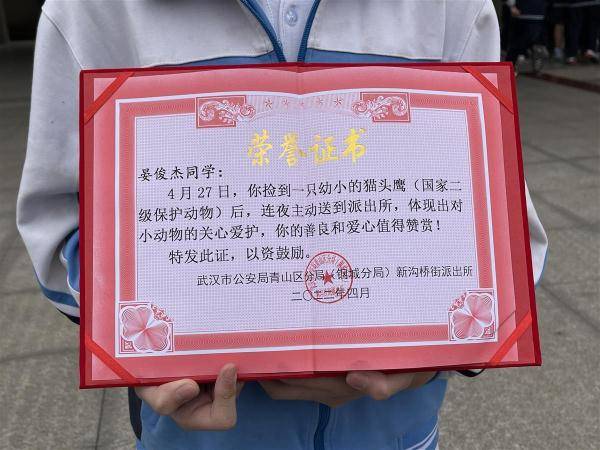 荣誉证书
晏俊杰同学：
4月27日，你捡到一只幼小的猫头鹰（国家二
级保护动物）后，连夜主动送到派出所，体现出对
小动物的关心爱护，你的善良和爱心值得赞赏！
特发此证，以资鼓励。
武汉市公安局青山区分局（钢城分局）新沟桥街派出所
二〇二三年四月